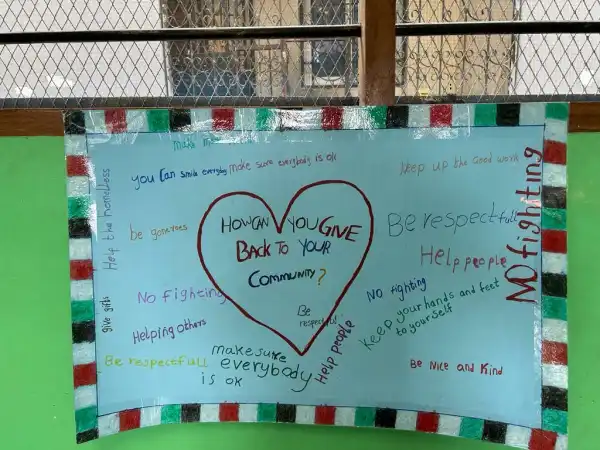 you can smile everyday
make sure everybody is ok
Keep up the Good work
Help the homeless
be generoes
HOW CAN YOU GIVE
BACK TO YOUR
COMMUNITY?
Be respectfull
Help people
NO fighting
No fighting
NO fighting
Be
respectful
give gifts
Helping others
Keep your hands and feet
to yourself
Be respectfull
make sure
everybody
is ok
Help people
Be Nice and Kind